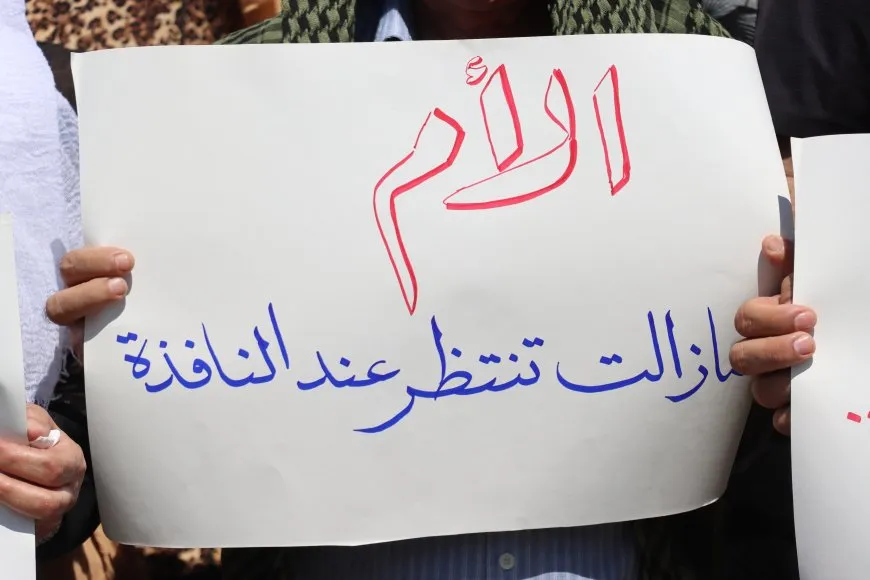 الأم
مازالت تنتظر عند النافذة